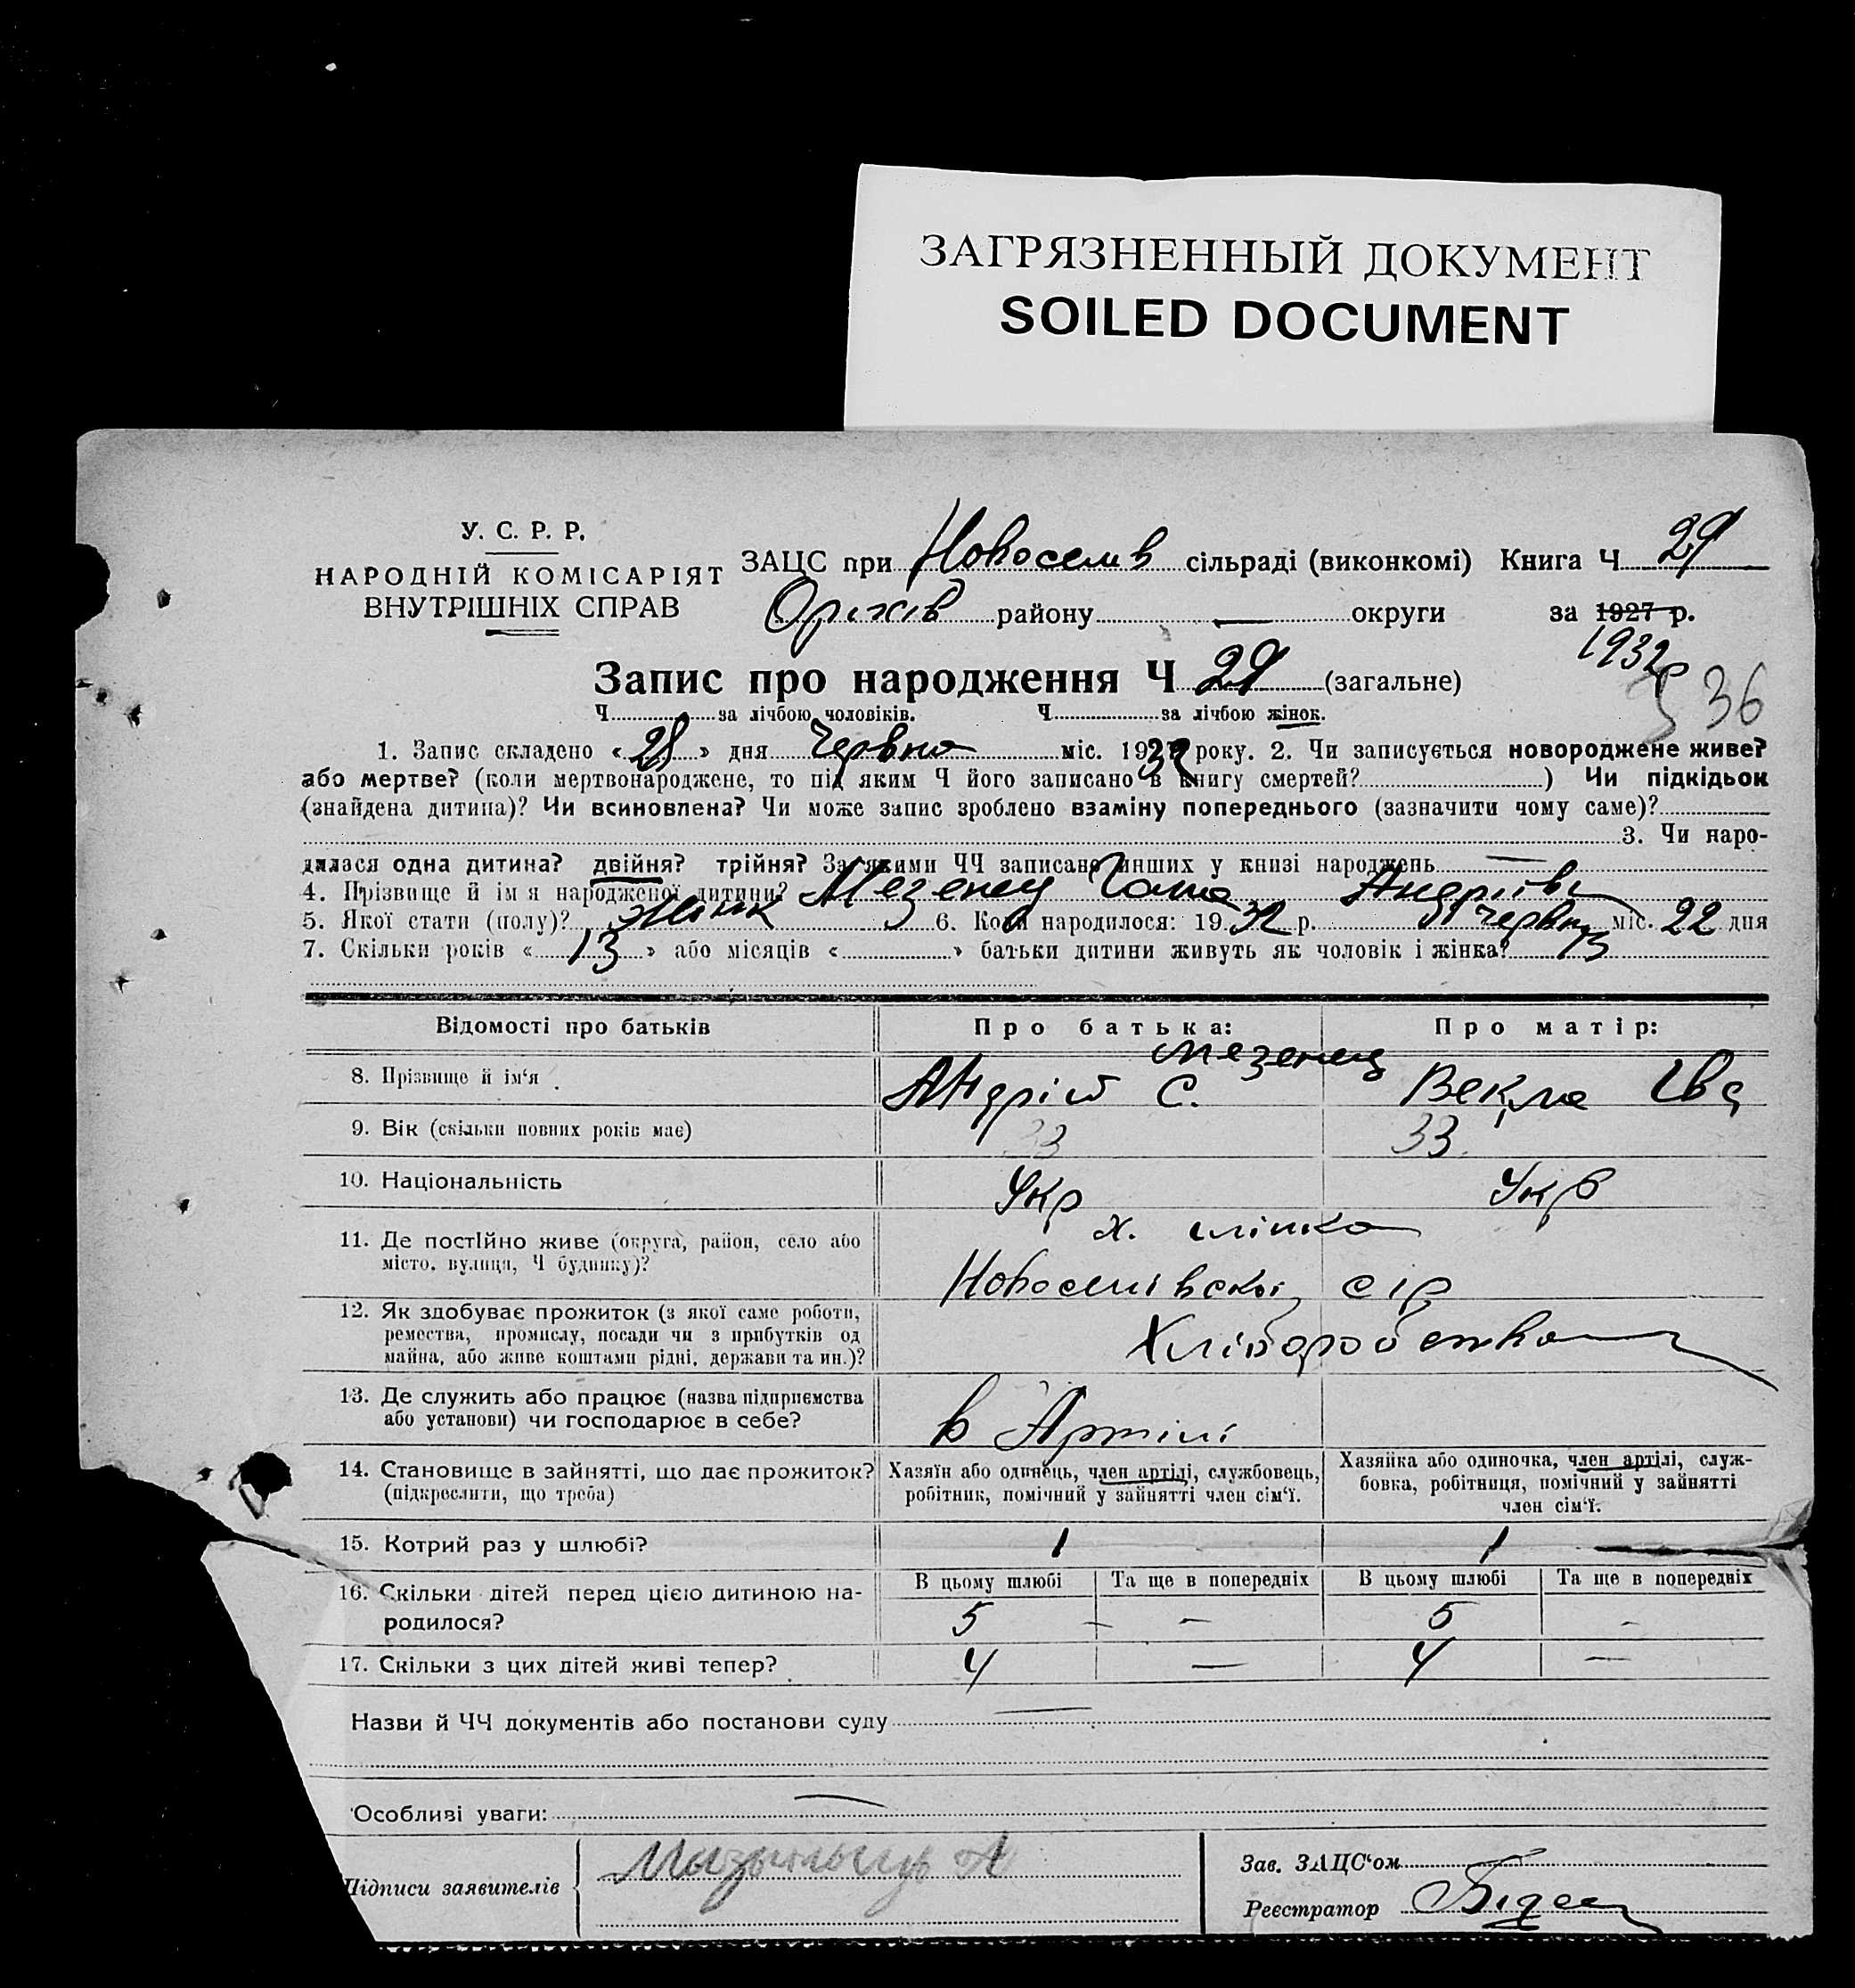 ЗАГРЯЗНЕННЫЙ ДОКУМЕНТ
SOILED DOCUMENT
У. С. Р. Р.
НАРОДНІЙ КОМІСАРІЯТ
ВНУТРІШНІХ СПРАВ
ЗАЦС при Новоселів сільраді (виконкомі) Книга Ч 29
Оріхів району — округи за 1927 р.
1932 р
Запис про народження Ч 29 (загальне)
36
Ч за лічбою чоловіків. Ч за лічбою жінок.
1. Запис складено «28» дня червня міс. 1932 року. 2. Чи записується новороджене живе?
або мертве? (коли мертвонароджене, то під яким Ч його записано в книгу смертей?) Чи підкідьок
(знайдена дитина)? Чи всиновлена? Чи може запис зроблено взаміну попереднього (зазначити чому саме)?
3. Чи наро-
дилася одна дитина? двійня? трійня? За якими ЧЧ записано инших у книзі народжень —
4. Прізвище й ім'я народженої дитини? Мезенец Андріївн
5. Якої стати (полу)? жінк 6. Коли народилося: 1932 р. червня міс. 22 дня
7. Скільки років «13» або місяців « » батьки дитини живуть як чоловік і жінка? 13
Відомості про батьків Про батька: Про матір:
Мезенец
8. Прізвище й ім'я Андрій С. Векла Ів
9. Вік (скільки повних років має) 33 33
10. Національність Укр Укр
11. Де постійно живе (округа, район, село або х.
місто, вулиця, Ч будинку)? Новоселівської с/р
12. Як здобуває прожиток (з якої саме роботи,
ремества, промислу, посади чи з прибутків од Хліборобство
майна, або живе коштами рідні, держави та ин.)?
13. Де служить або працює (назва підприємства
або установи) чи господарює в себе? в Артілі
14. Становище в зайнятті, що дає прожиток? Хазяїн або одинець, член артілі, службовець, Хазяйка або одиночка, член артілі, служ-
(підкреслити, що треба) робітник, помічний у зайнятті член сім'ї. бовка, робітниця, помічний у зайнятті
член сім'ї.
15. Котрий раз у шлюбі? 1 1
16. Скільки дітей перед цією дитиною на- В цьому шлюбі Та ще в попередніх В цьому шлюбі Та ще в попередніх
родилося? 5 — 5 -
17. Скільки з цих дітей живі тепер? 4 — 4 —
Назви й ЧЧ документів або постанови суду —
Особливі уваги: —
Підписи заявителів
Зав. ЗАЦС'ом
Реєстратор